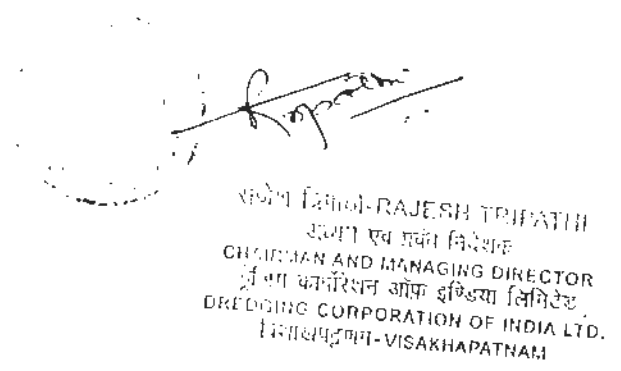 राजेश त्रिपाठी-RAJESH TRIPATHI
अध्यक्ष एवं प्रबंध निदेशक
CHAIRMAN AND MANAGING DIRECTOR
कार्पोरेशन ऑफ़ इण्डिया लिमिटेड
DREDGING CORPORATION OF INDIA LTD.
विशाखपट्टणम-VISAKHAPATNAM